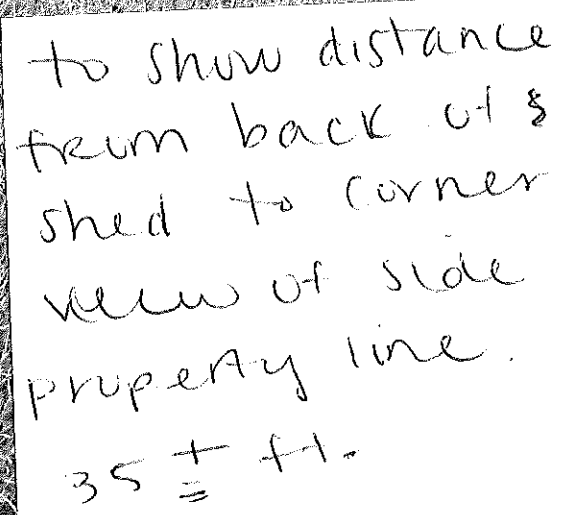 to show distance
from back of
shed to corner
view of side
property line.
35 ± ft.